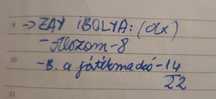 -> ZAY IBOLYA: (dx)
- Álozom - 8
- B. a játékmackó - 14
22